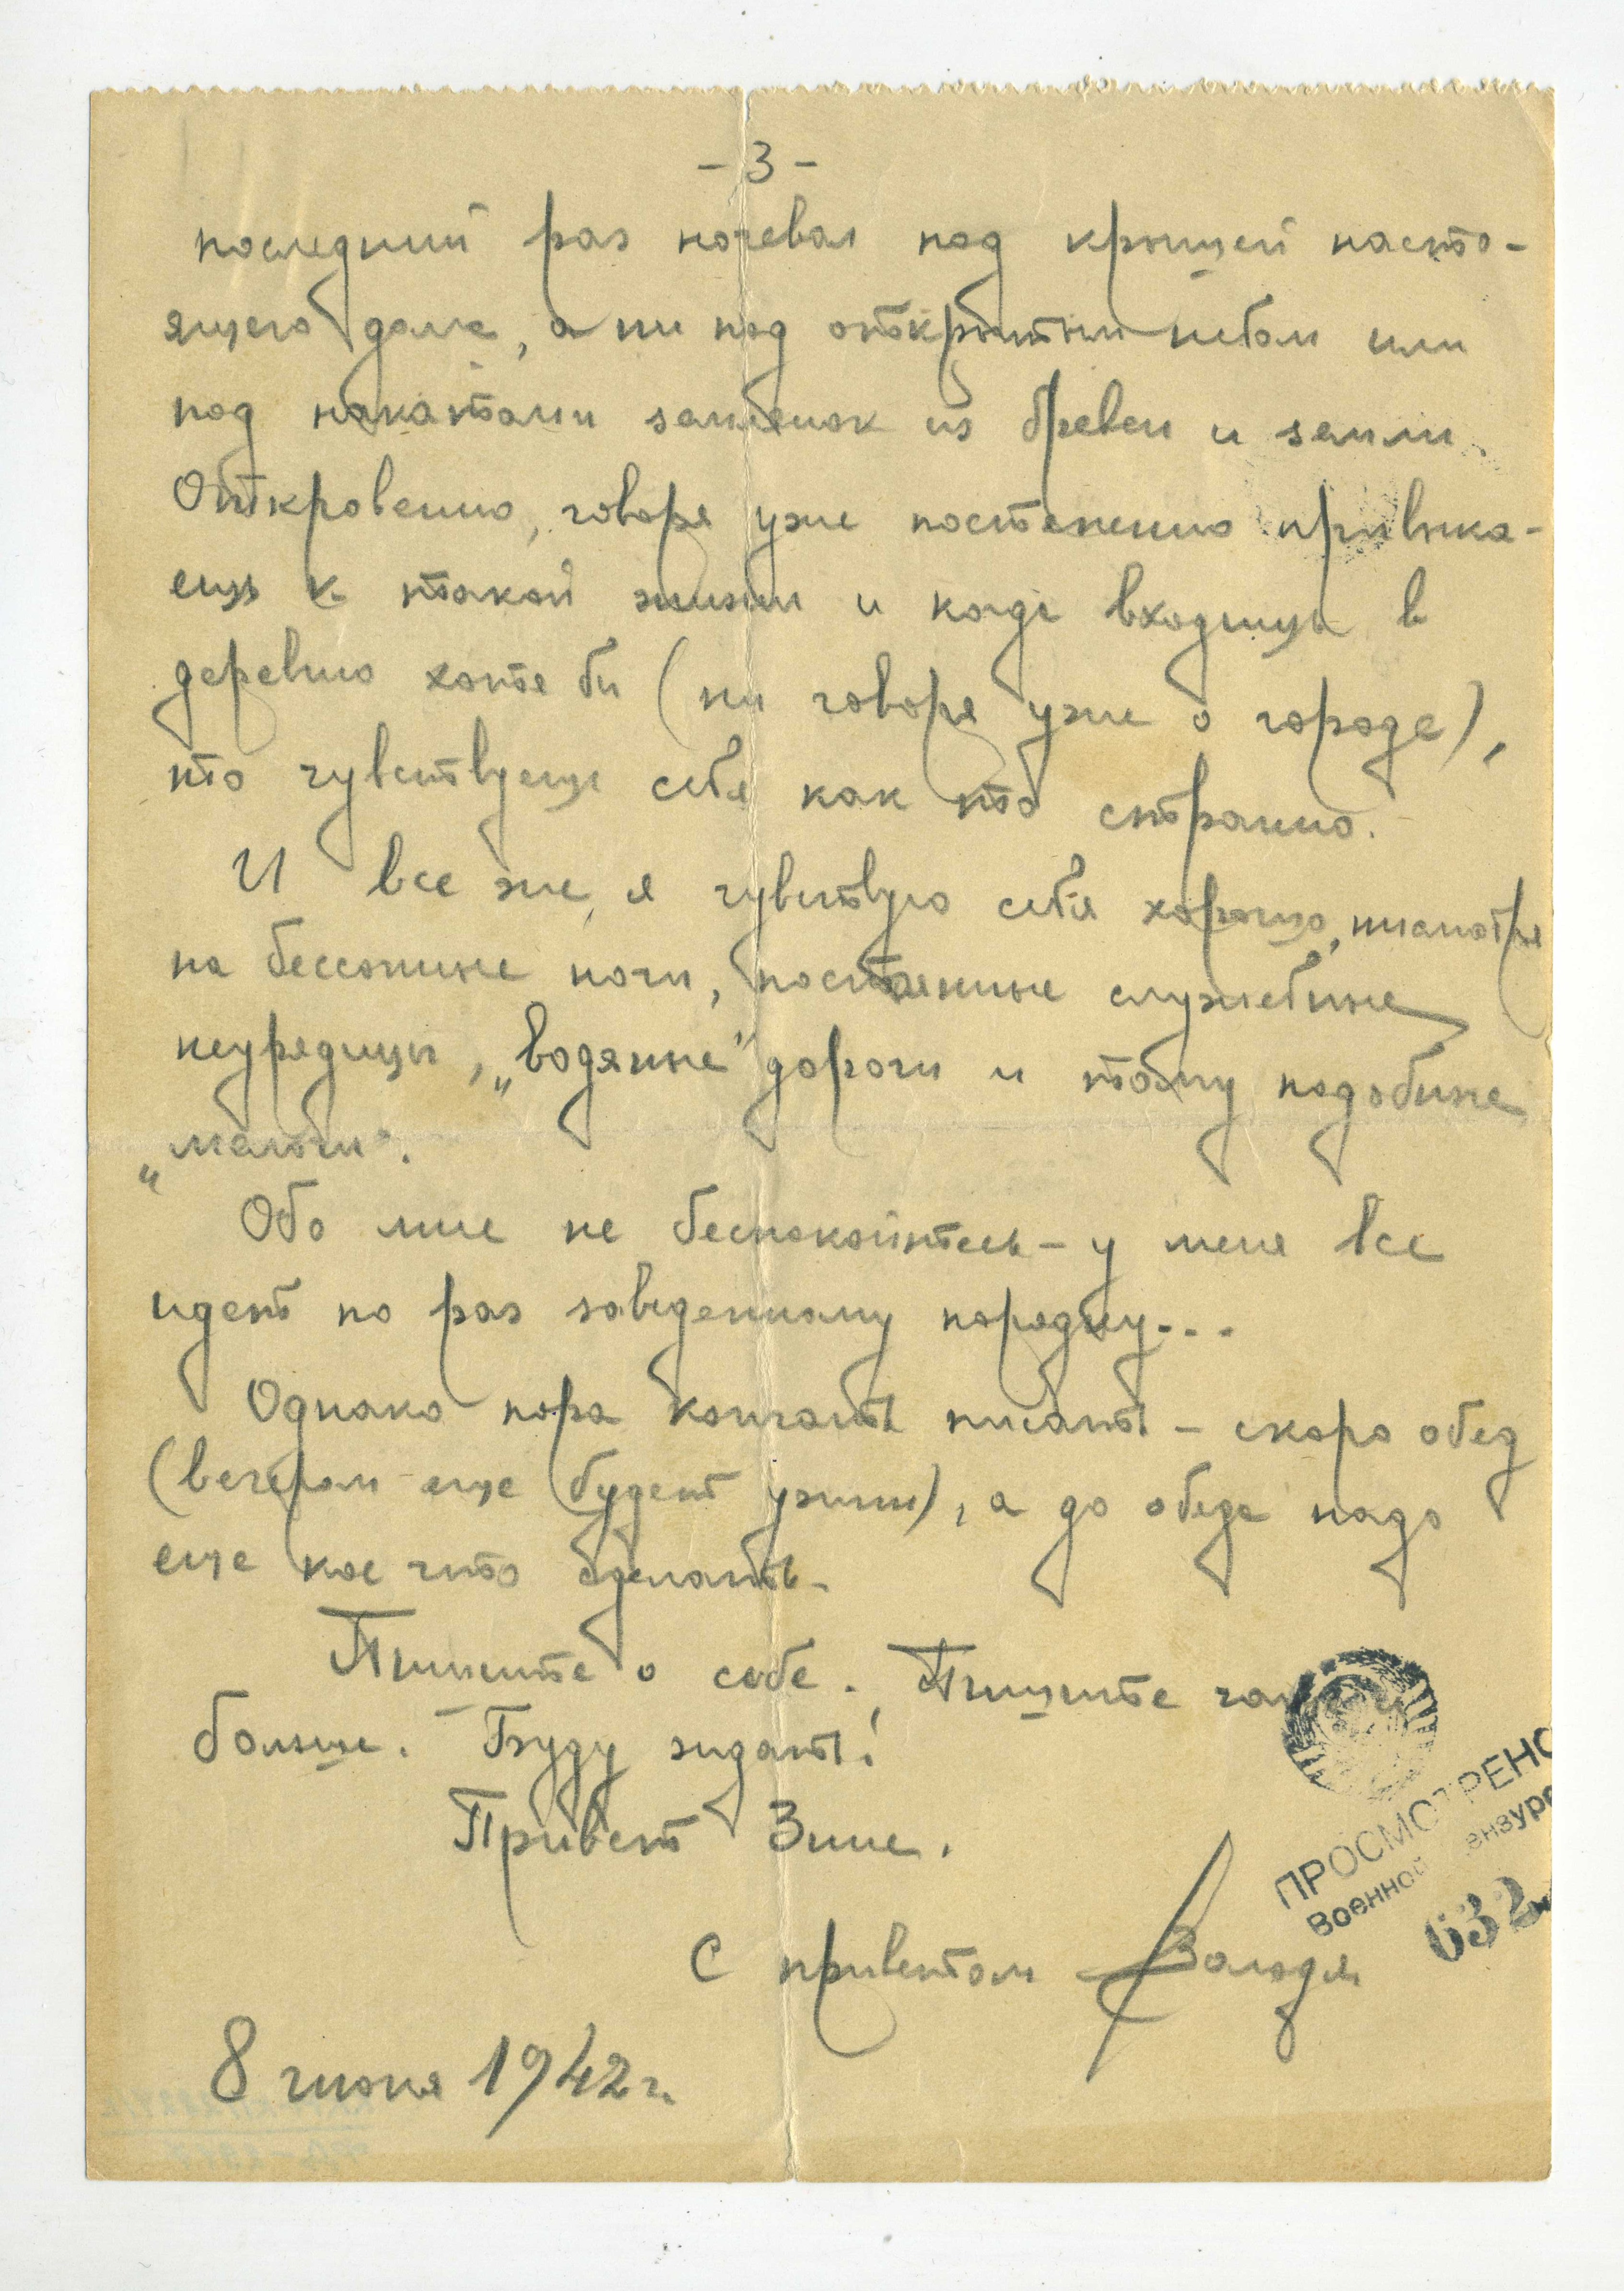 - 3 -
последний раз ночевал под крышей насто-
ящего дома, а не под открытым небом или
под накатами землянок из бревен и земли.
Откровенно, говоря уже постепенно привыка-
ешь к такой жизни и когда входишь в
деревню хотя бы (не говоря уже о городе),
то чувствуешь себя как то странно.
И все же, я чувствую себя хорошо, несмотря
на бессонные ночи, постоянные служебные
неурядицы, „водяные" дороги и тому подобные
„мелочи".
Обо мне не беспокойтесь - у меня все
идет по раз заведенному порядку...
Однако пора кончать писать - скоро обед
(вечером еще будет ужин), а до обеда надо
еще кое что сделать.
Пишите о себе. Пишите чаще и
больше. Буду ждать!
Привет Зине.
С приветом Володя
8 июня 1942 г.
ПРОСМОТРЕНО
Военной Цензурой
632